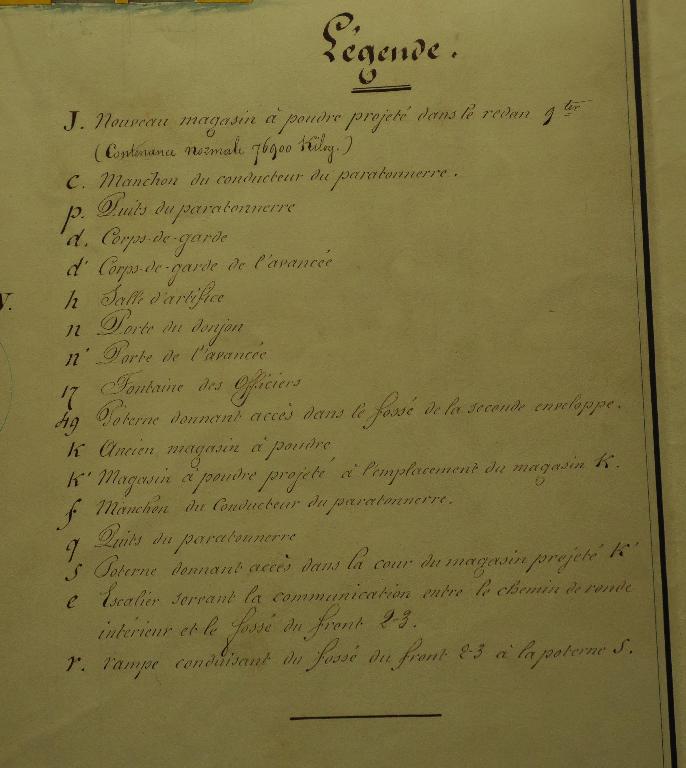 Légende.
J. Nouveau magasin à poudre projeté dans le redan 9 ter
(Contenance normale 76900 Kilog.)
c. Manchon du conducteur du paratonnerre.
p. Puits du paratonnerre
d. Corps-de-garde
d' Corps-de-garde de l'avancée
V.
h Salle d'artifice
n Porte du donjon
n' Porte de l'avancée
17 Fontaine des Officiers
49 Poterne donnant accès dans le fossé de la seconde enveloppe.
K Ancien magasin à poudre
K' Magasin à poudre projeté à l'emplacement du magasin K.
f Manchon du Conducteur du paratonnerre.
q Puits du paratonnerre
s Poterne donnant accès dans la cour du magasin projeté K'
e Escalier servant la communication entre le chemin de ronde
intérieur et le fossé du front 2-3.
r. rampe conduisant du fossé du front 2-3 à la poterne S.